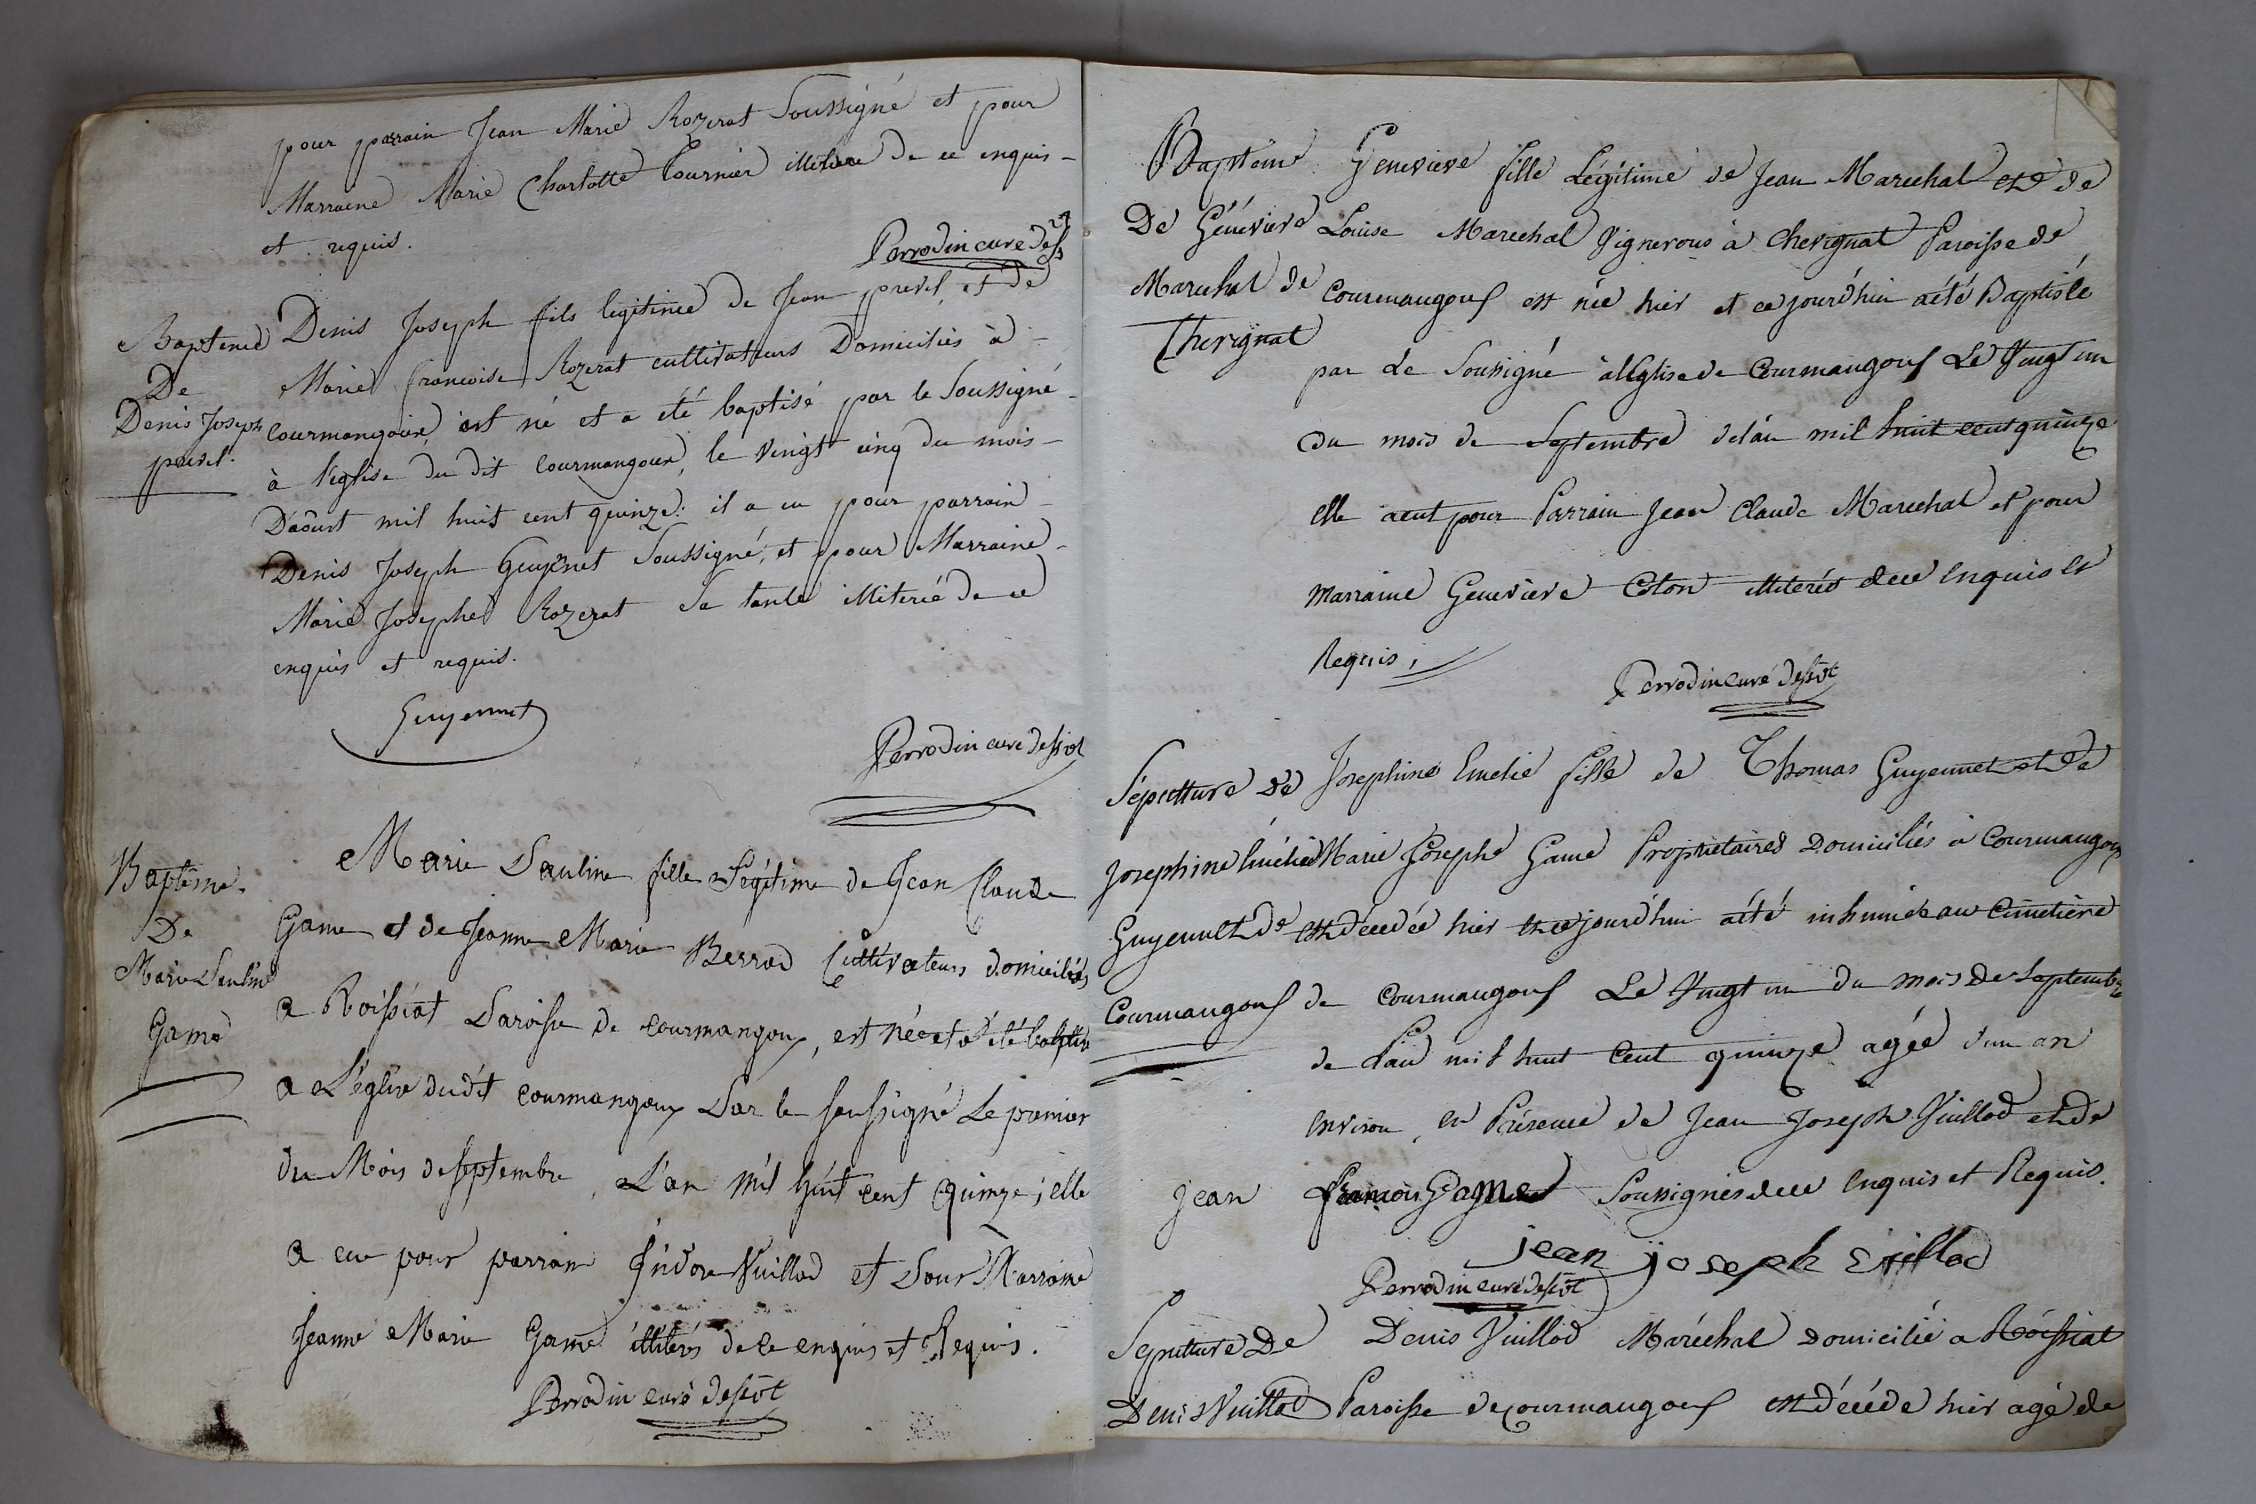 pour parrain Jean Marie Rozerat Soussigné et pour
Marraine Marie Charlotte Tournier illiterée de ce enquis -
et requis.
Perrodin curé
Baptemé
De
Denis Joseph
prevel.
Denis Joseph fils legitime de Jean prevel, et de
Marie francoise Rozerat cultivateurs Domiciliés à -
Courmangoux, est né et a été baptisé par le Soussigné -
à l'eglise du dit Courmangoux, le vingt cinq du mois -
D'aoûst mil huit cent quinze: il a eu pour parrain -
Denis Joseph Guyenet Soussigné, et pour Marraine -
Marie Josephe Rozerat Sa tante illiterée de ce
enquis et requis.
Guyennet
Perrodin curé
Baptême.
De
Marie Pauline
Game
Marie Pauline fille Légitime de Jean Claude
Game et de Jeanne Marie Berrod Cultivateurs domiciliés
a Roissiat Paroisse de courmangoux, est née et a été baptisée
a L'église dudit courmangoux Par le soussigné Le premier
du Mois de septembre L'an mil huit cent quinze; elle
a eu pour parrain Vuillod et Pour Marraine
Jeanne Marie Game illitérés de ce enquis et Requis.
Perrodin curé
Baptême
De Généviere
Marechal de
Cherignat
Genevieve fille Légitime de Jean Marechal et de
Louise Marechal Vignerons à Cherignat Paroisse de
Courmangoux est née hier et ce jourd'hui a été Baptisée
par Le Soussigné à l'Eglise de Courmangoux Le Vingt un
du mois de Septembre de l'an mil huit cent quinze
elle a eut pour Parrain Jean Claude Marechal et pour
Marraine Genevieve Coton illiterés de ce Enquis et
Requis;
Perrodin curé
Sépulture de
Josephine Emélie
Guyennet de
Courmangoux
Josephine Emelie fille de Thomas Guyennet et de
Marie Josephe Game Propriétaires Domiciliés à Courmangoux
est décedée hier et ce jourd'hui a été inhumée au Cimetière
de Courmangoux Le Vingt un du mois de Septembre
de l'an mil huit cent quinze agée d'un an
environ, en Présence de Jean Joseph Vuillod et de
Jean François Game Soussignés de ce Enquis et Requis.
jean joseph Vuillod
Perrodin curé
Sepulture De
Denis Vuillod
Denis Vuillod Maréchal Domicilié a Roissiat
Paroisse de Courmangoux est décédé hier agé de